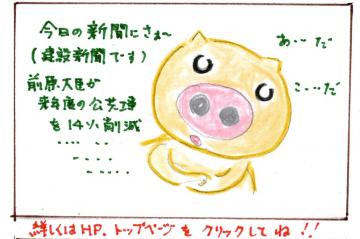 今日の新聞にさぁ〜
(建設新聞です)
前原大臣が
来年度の公共工事
を14%削減
..... ...
......
あ…だ
こ…だ
詳しくはHP.トップページをクリックしてね!!